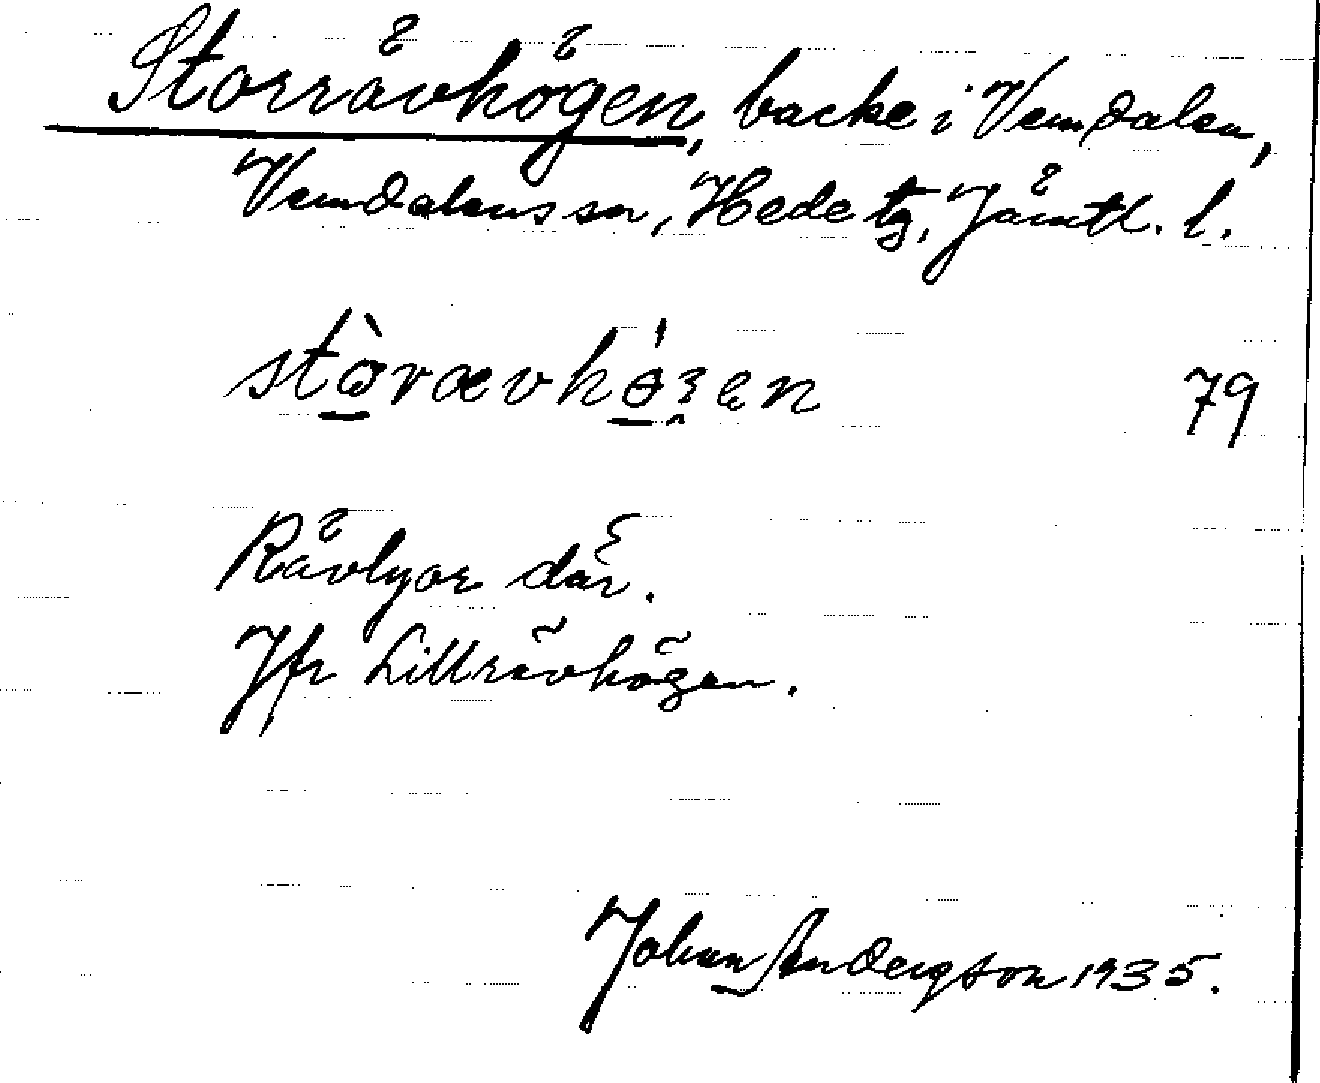 Storrävhögen, backe i Vemdalen,
Vemdalens sn, Hede tg, Jämtl. l.
stòrævhǿgen 79
Rävlyor där.
Jfr Lillrävhögen.
Johan Andersson 1935.